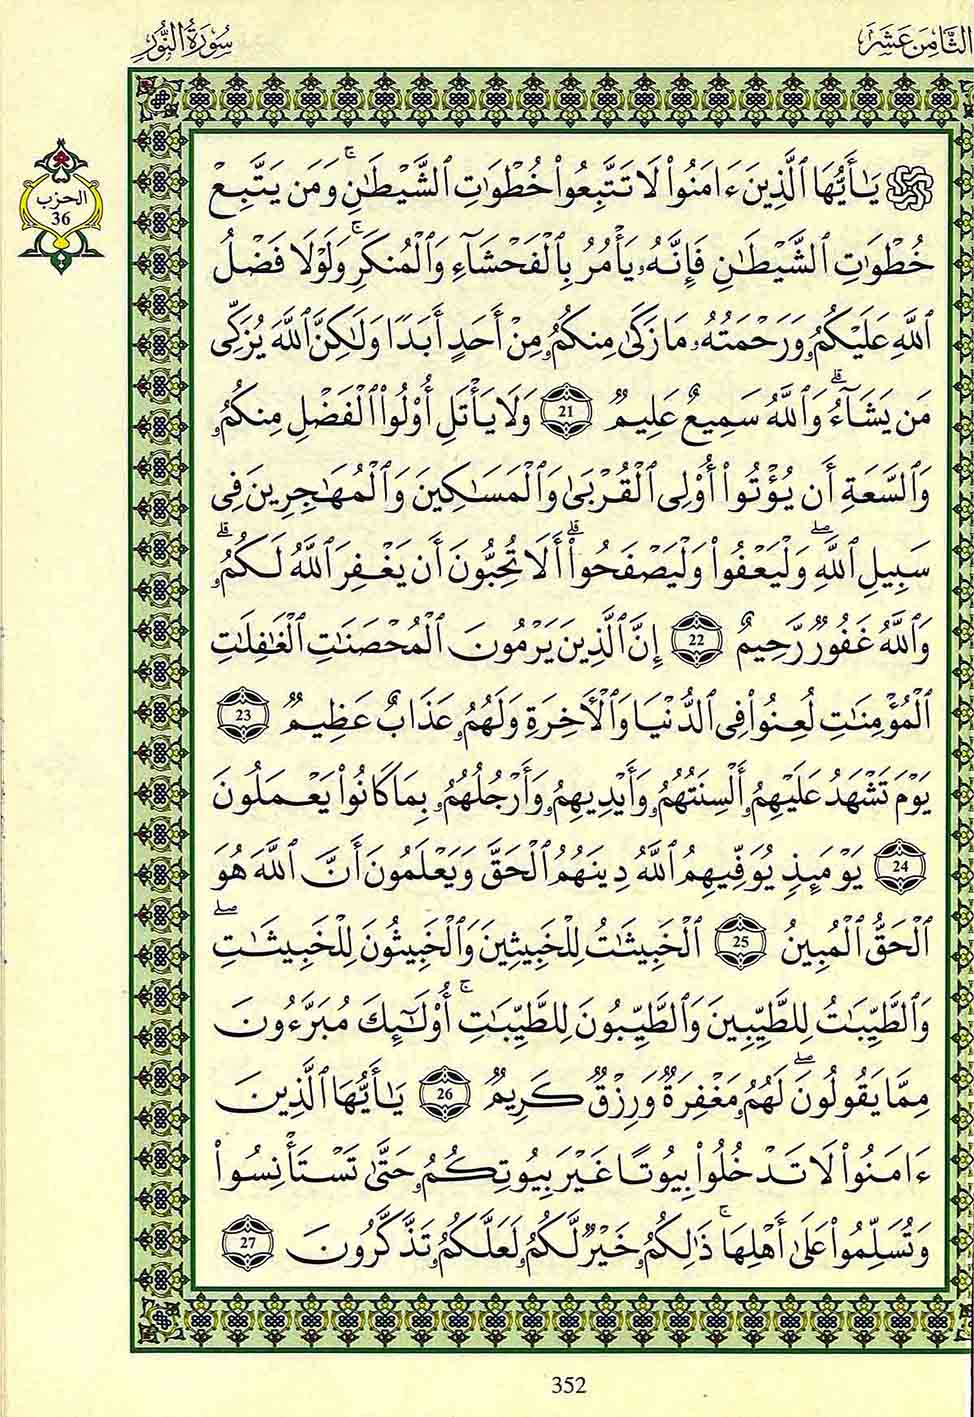 الثَّامِنَ عَشَرَ
سُورَةُ النُّورِ
الحزب
36
يَٰٓأَيُّهَا ٱلَّذِينَ ءَامَنُوا۟ لَا تَتَّبِعُوا۟ خُطْوَٰتِ ٱلشَّيْطَٰنِ ۚ وَمَن يَتَّبِعْ
خُطْوَٰتِ ٱلشَّيْطَٰنِ فَإِنَّهُۥ يَأْمُرُ بِٱلْفَحْشَآءِ وَٱلْمُنكَرِ ۚ وَلَوْلَا فَضْلُ
ٱللَّهِ عَلَيْكُمُۥ وَرَحْمَتُهُۥ مَا زَكَىٰ مِنكُمُۥ مِنْ أَحَدٍ أَبَدًا وَلَٰكِنَّ ٱللَّهَ يُزَكِّى
مَن يَشَآءُ ۗ وَٱللَّهُ سَمِيعٌ عَلِيمٌ 21 وَلَا يَأْتَلِ أُو۟لُوا۟ ٱلْفَضْلِ مِنكُمُۥ
وَٱلسَّعَةِ أَن يُؤْتُوٓا۟ أُو۟لِى ٱلْقُرْبَىٰ وَٱلْمَسَٰكِينَ وَٱلْمُهَٰجِرِينَ فِى
سَبِيلِ ٱللَّهِ ۖ وَلْيَعْفُوا۟ وَلْيَصْفَحُوٓا۟ ۗ أَلَا تُحِبُّونَ أَن يَغْفِرَ ٱللَّهُ لَكُمُۥ ۗ
وَٱللَّهُ غَفُورٌ رَّحِيمٌ 22 إِنَّ ٱلَّذِينَ يَرْمُونَ ٱلْمُحْصَنَٰتِ ٱلْغَٰفِلَٰتِ
ٱلْمُؤْمِنَٰتِ لُعِنُوا۟ فِى ٱلدُّنْيَا وَٱلْأَخِرَةِ وَلَهُمُۥ عَذَابٌ عَظِيمٌ 23
يَوْمَ تَشْهَدُ عَلَيْهِمُۥ أَلْسِنَتُهُمُۥ وَأَيْدِيهِمُۥ وَأَرْجُلُهُمُۥ بِمَا كَانُوا۟ يَعْمَلُونَ
24 يَوْمَئِذٍ يُوَفِّيهِمُ ٱللَّهُ دِينَهُمُ ٱلْحَقَّ وَيَعْلَمُونَ أَنَّ ٱللَّهَ هُوَ
ٱلْحَقُّ ٱلْمُبِينُ 25 ٱلْخَبِيثَٰتُ لِلْخَبِيثِينَ وَٱلْخَبِيثُونَ لِلْخَبِيثَٰتِ ۖ
وَٱلطَّيِّبَٰتُ لِلطَّيِّبِينَ وَٱلطَّيِّبُونَ لِلطَّيِّبَٰتِ ۚ أُو۟لَٰٓئِكَ مُبَرَّءُونَ
مِمَّا يَقُولُونَ ۖ لَهُمُۥ مَغْفِرَةٌ وَرِزْقٌ كَرِيمٌ 26 يَٰٓأَيُّهَا ٱلَّذِينَ
ءَامَنُوا۟ لَا تَدْخُلُوا۟ بِيُوتًا غَيْرَ بِيُوتِكُمُۥ حَتَّىٰ تَسْتَأْنِسُوا۟
وَتُسَلِّمُوا۟ عَلَىٰٓ أَهْلِهَا ۚ ذَٰلِكُمُۥ خَيْرٌ لَّكُمُۥ لَعَلَّكُمُۥ تَذَّكَّرُونَ 27
352